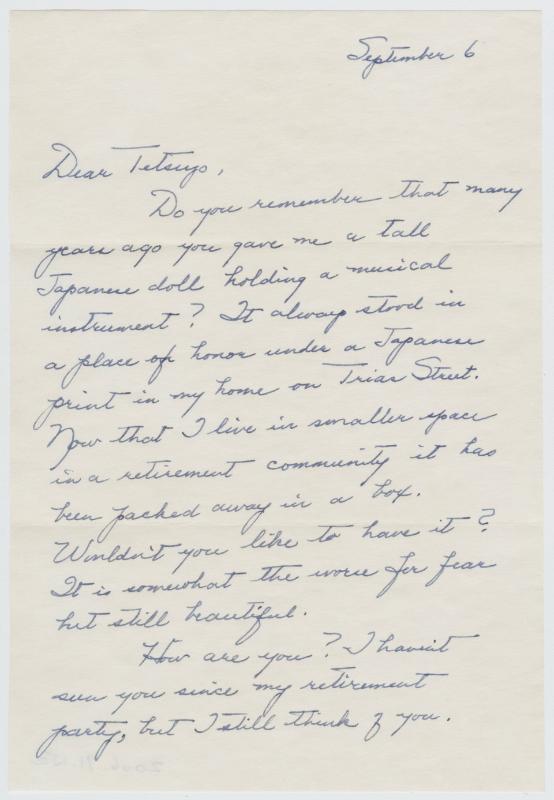 September 6
Dear Tetsuyo,
Do you remember that many
years ago you gave me a tall
Japanese doll holding a musical
instrument? It always stood in
a place of honor under a Japanese
print in my home on Trias Street.
Now that I live in smaller space
in a retirement community it has
been packed away in a box.
Wouldn't you like to have it?
It is somewhat the worse for fear
but still beautiful.
How are you? I haven't
seen you since my retirement
party, but I still think of you.